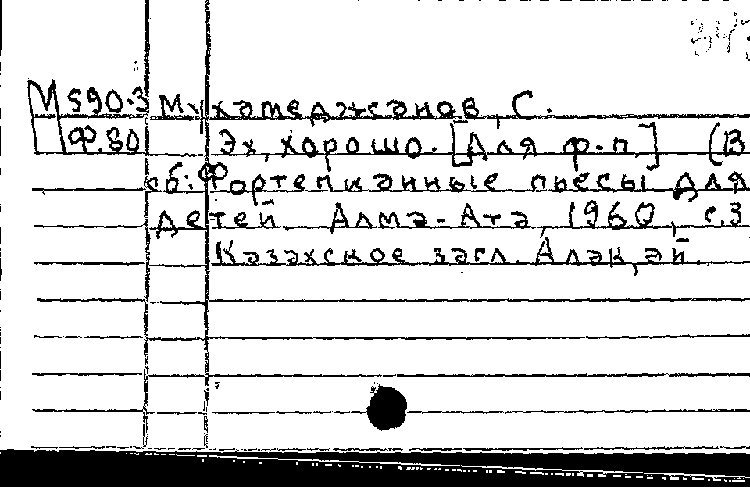 М590.3 Мухамеджанов, С.
Ф.80 Эх, хорошо. [Для ф.-п.] (В
сб: Фортепианные пьесы для
детей. Алма-Ата, 1960, с.3
Казахское загл. Алақай.